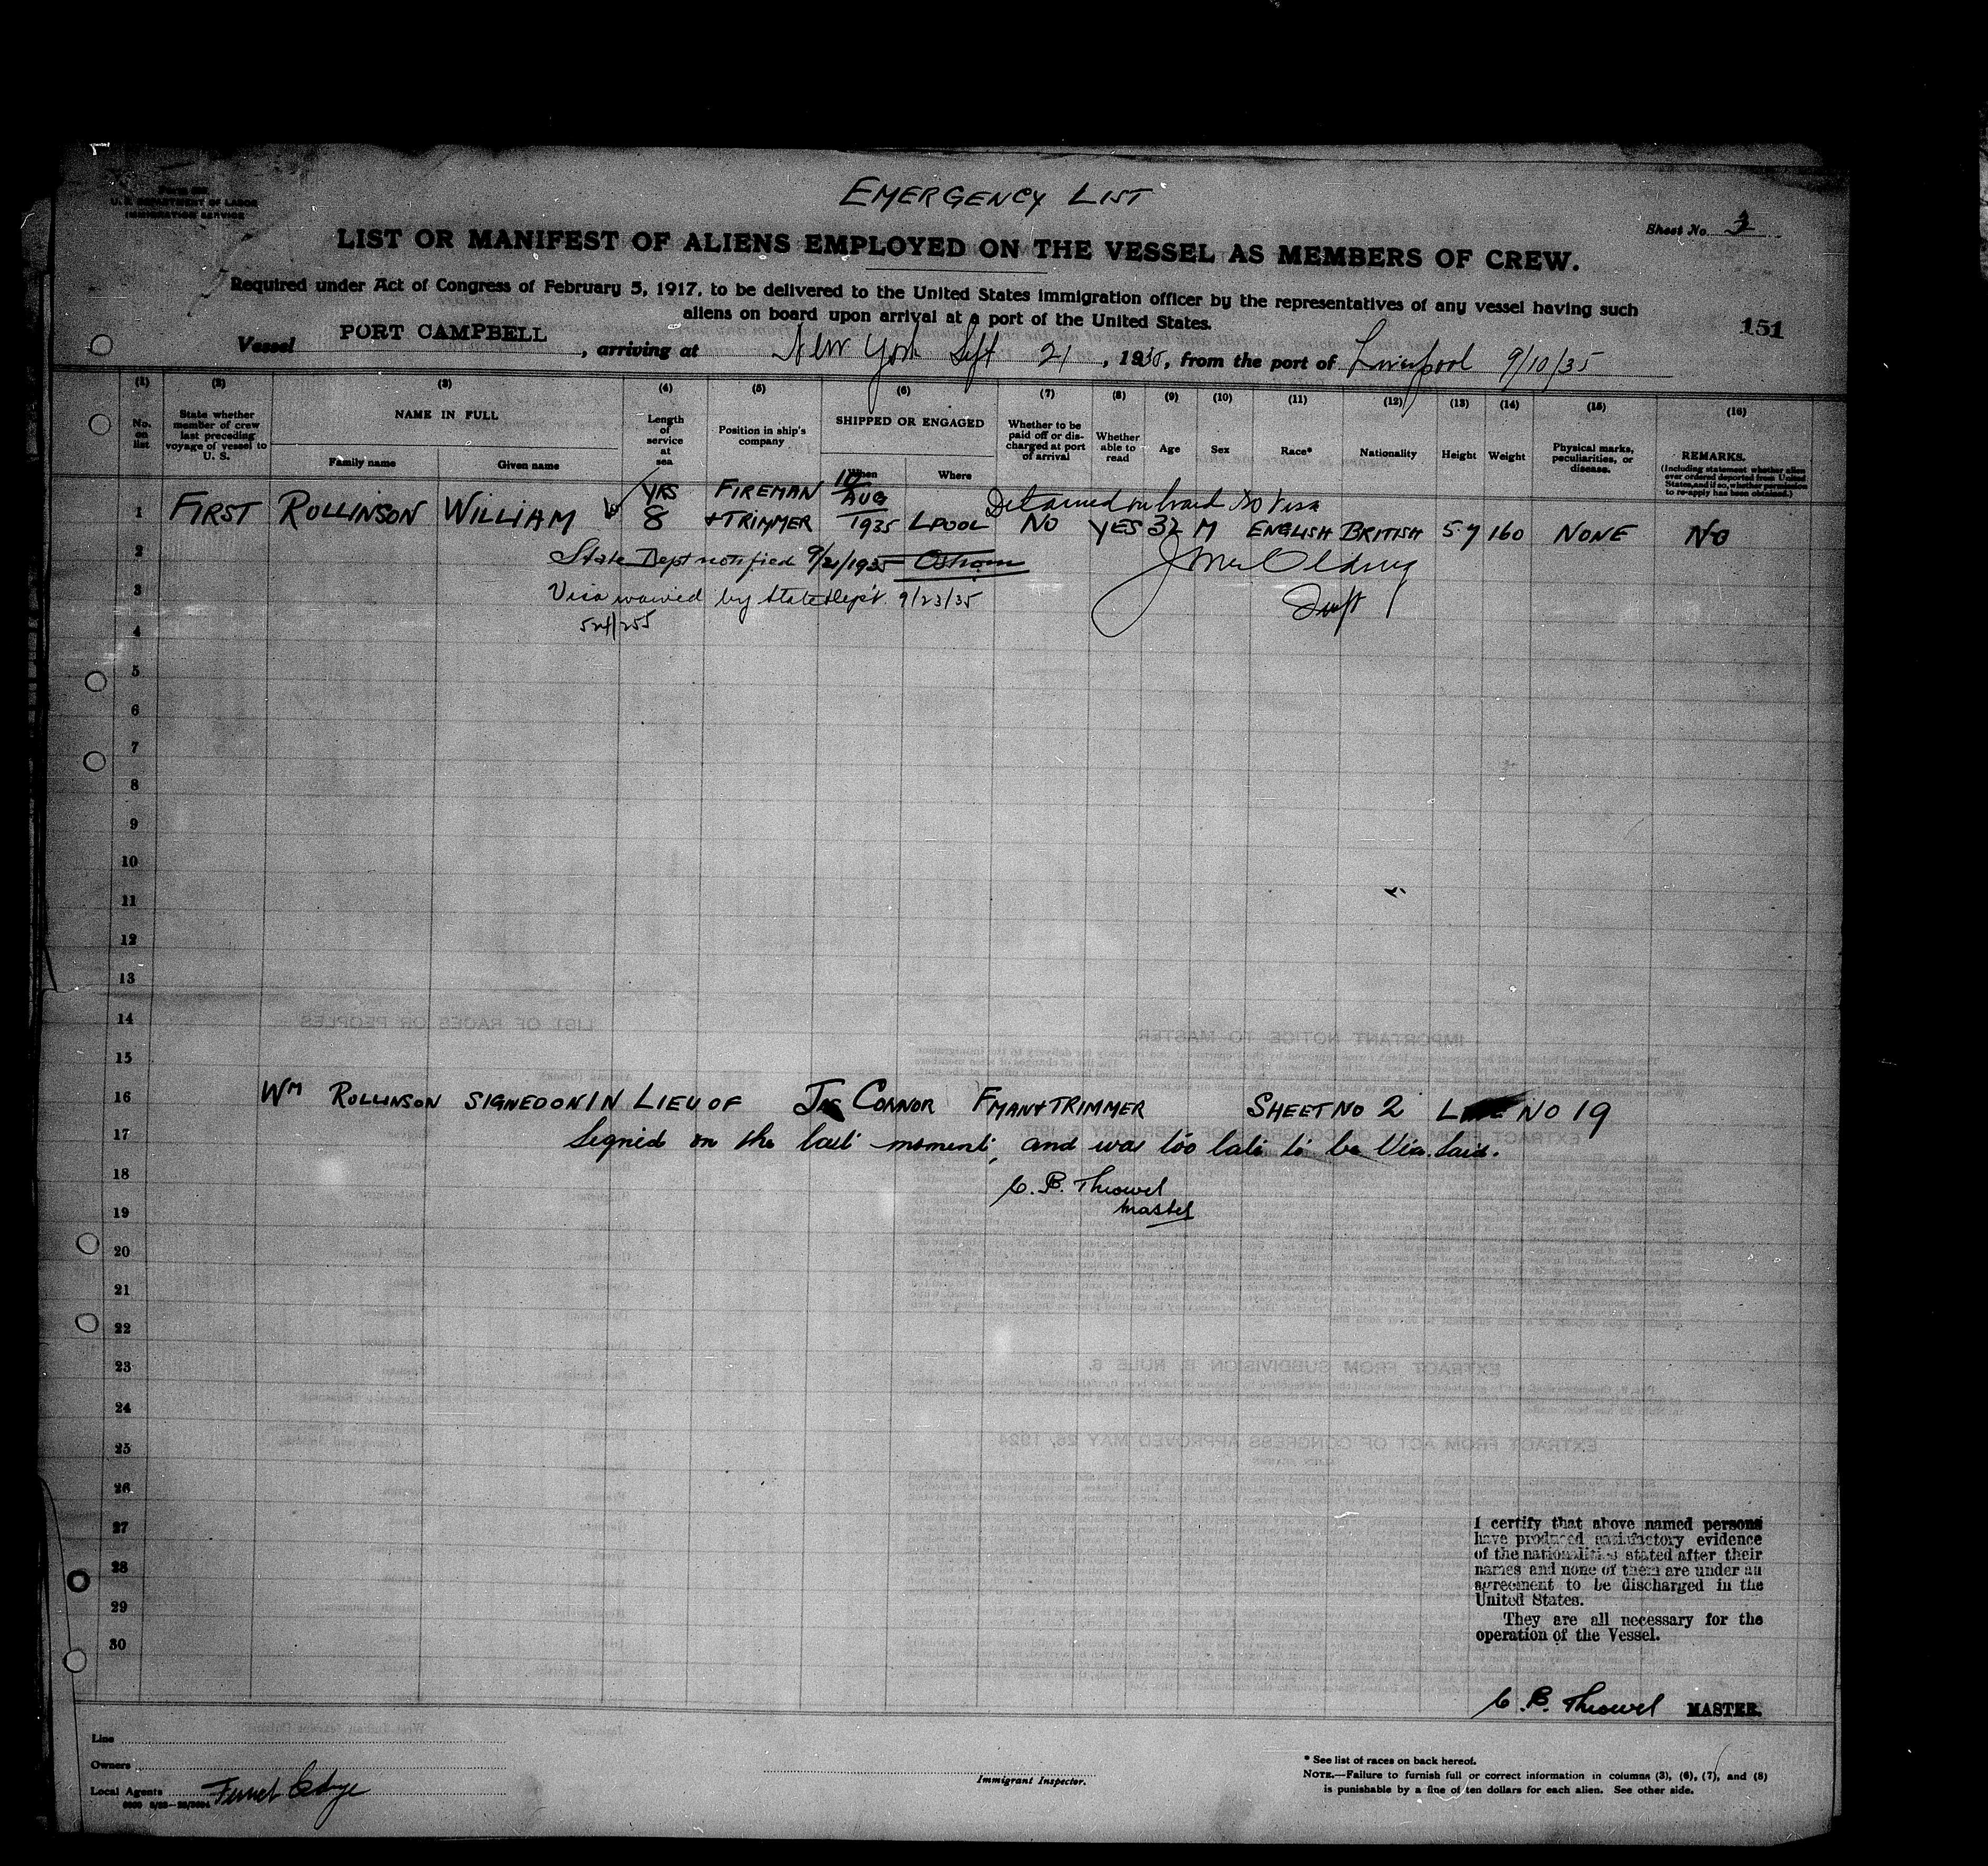 EMERGENCY LIST
U. S. DEPARTMENT OF LABOR
IMMIGRATION SERVICE
Sheet No. 3
LIST OR MANIFEST OF ALIENS EMPLOYED ON THE VESSEL AS MEMBERS OF CREW.
Required under Act of Congress of February 5, 1917, to be delivered to the United States immigration officer by the representatives of any vessel having such
aliens on board upon arrival at a port of the United States.
151
Vessel PORT CAMPBELL, arriving at New York Sept 21, 1935, from the port of Liverpool 9/10/35
(1) (2) (3) (4) (5) (6) (7) (8) (9) (10) (11) (12) (13) (14) (15) (16)
No. on list
State whether member of crew last preceding voyage of vessel to U. S.
NAME IN FULL
Family name
Given name
Length of service at sea
Position in ship's company
SHIPPED OR ENGAGED
When
Where
Whether to be paid off or discharged at port of arrival
Whether able to read
Age
Sex
Race*
Nationality
Height
Weight
Physical marks, peculiarities, or disease.
REMARKS.
(Including statement whether alien ever ordered deported from United States, and if so, whether permission to re-apply has been obtained.)
YRS FIREMAN AUG Detained on board No Visa
1 FIRST ROLLINSON WILLIAM 8 +TRIMMER 1935 LPOOL NO YES 32 M ENGLISH BRITISH 5.7 160 NONE NO
2 State Dept notified 9/21/1935
3 Visa waived by State Dept. 9/23/35
4
5
6
7
8
9
10
11
12
13
14
15
16 WM ROLLINSON SIGNED ON IN LIEU OF JAS CONNOR FMAN+TRIMMER SHEET NO 2 NO 19
17 Signed on the last moment, and was too late to be
18 C. B.
19 Master
20
21
22
23
24
25
26
27
28
29
30
I certify that above named persons
have produced satisfactory evidence
of the nationalities stated after their
names and none of them are under an
agreement to be discharged in the
United States.
They are all necessary for the
operation of the Vessel.
C. B. MASTER.
Line
Owners
Local Agents
Immigrant Inspector.
* See list of races on back hereof.
NOTE.—Failure to furnish full or correct information in columns (3), (6), (7), and (8)
is punishable by a fine of ten dollars for each alien. See other side.